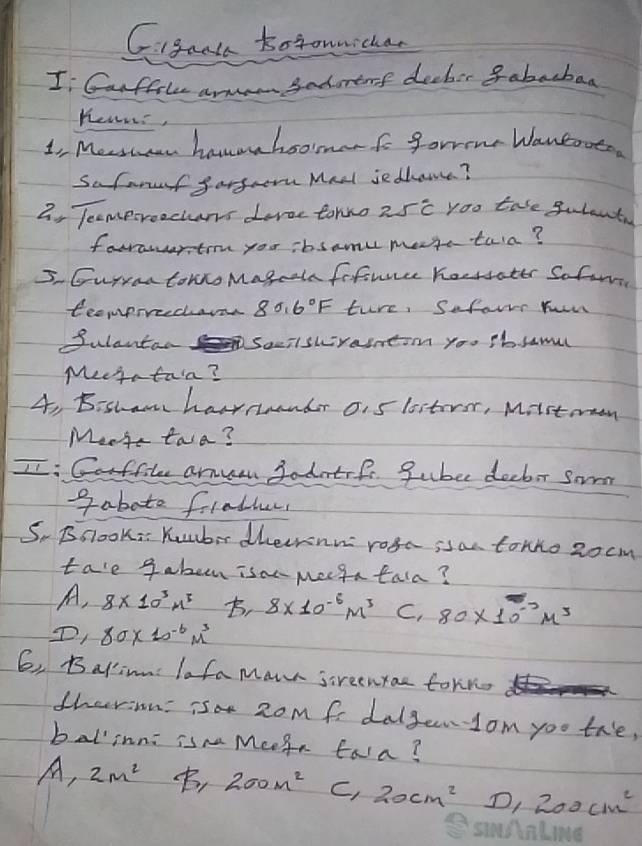 Gilgaala Boqonnichaa
I: Gaaffilee armaan gadiitiif deebii gabaabaa
Kenni,
1, Meeshaan hammahoo'inaa fi qorrina Wantootaa
Safaruuf gargaaru Maal jedhama?
2, Teempireechariin daree tokko 25°C yoo ta'e gulantaa
faaranaayitiin yoo ibsamu meeqa ta'a?
3, Gurraa tokko Magaala Finfinnee Keessatti Safarri
teempireecharaa 80.6°F ture. Safarri kun
gulantaa Seelshiyasiitiin yoo ibsamu
Meeqa ta'a?
4, Bishaan haaroo 0.5 liitirii, Miliitiraan
Meeqa ta'a?
II: Gaaffilee armaan gadiitiif Qubee deebii Sirrii
qabate filadhu,
5, Bilookii Kuubii dheerinni roga isaa tokko 20cm
ta'e qabeen isaa meeqa ta'a?
A, 8x10³M³ B, 8x10⁻⁶M³ C, 80x10⁻³M³
D, 80x10⁻⁶M³
6, Bal'inni lafa Mana jireenyaa tokko
dheerinni isaa 20M fi dalgeen 10m yoo ta'e,
bal'inni isaa Meeqa ta'a?
A, 2m² B, 200M² C, 20cm² D, 200cm²
SINARLINE